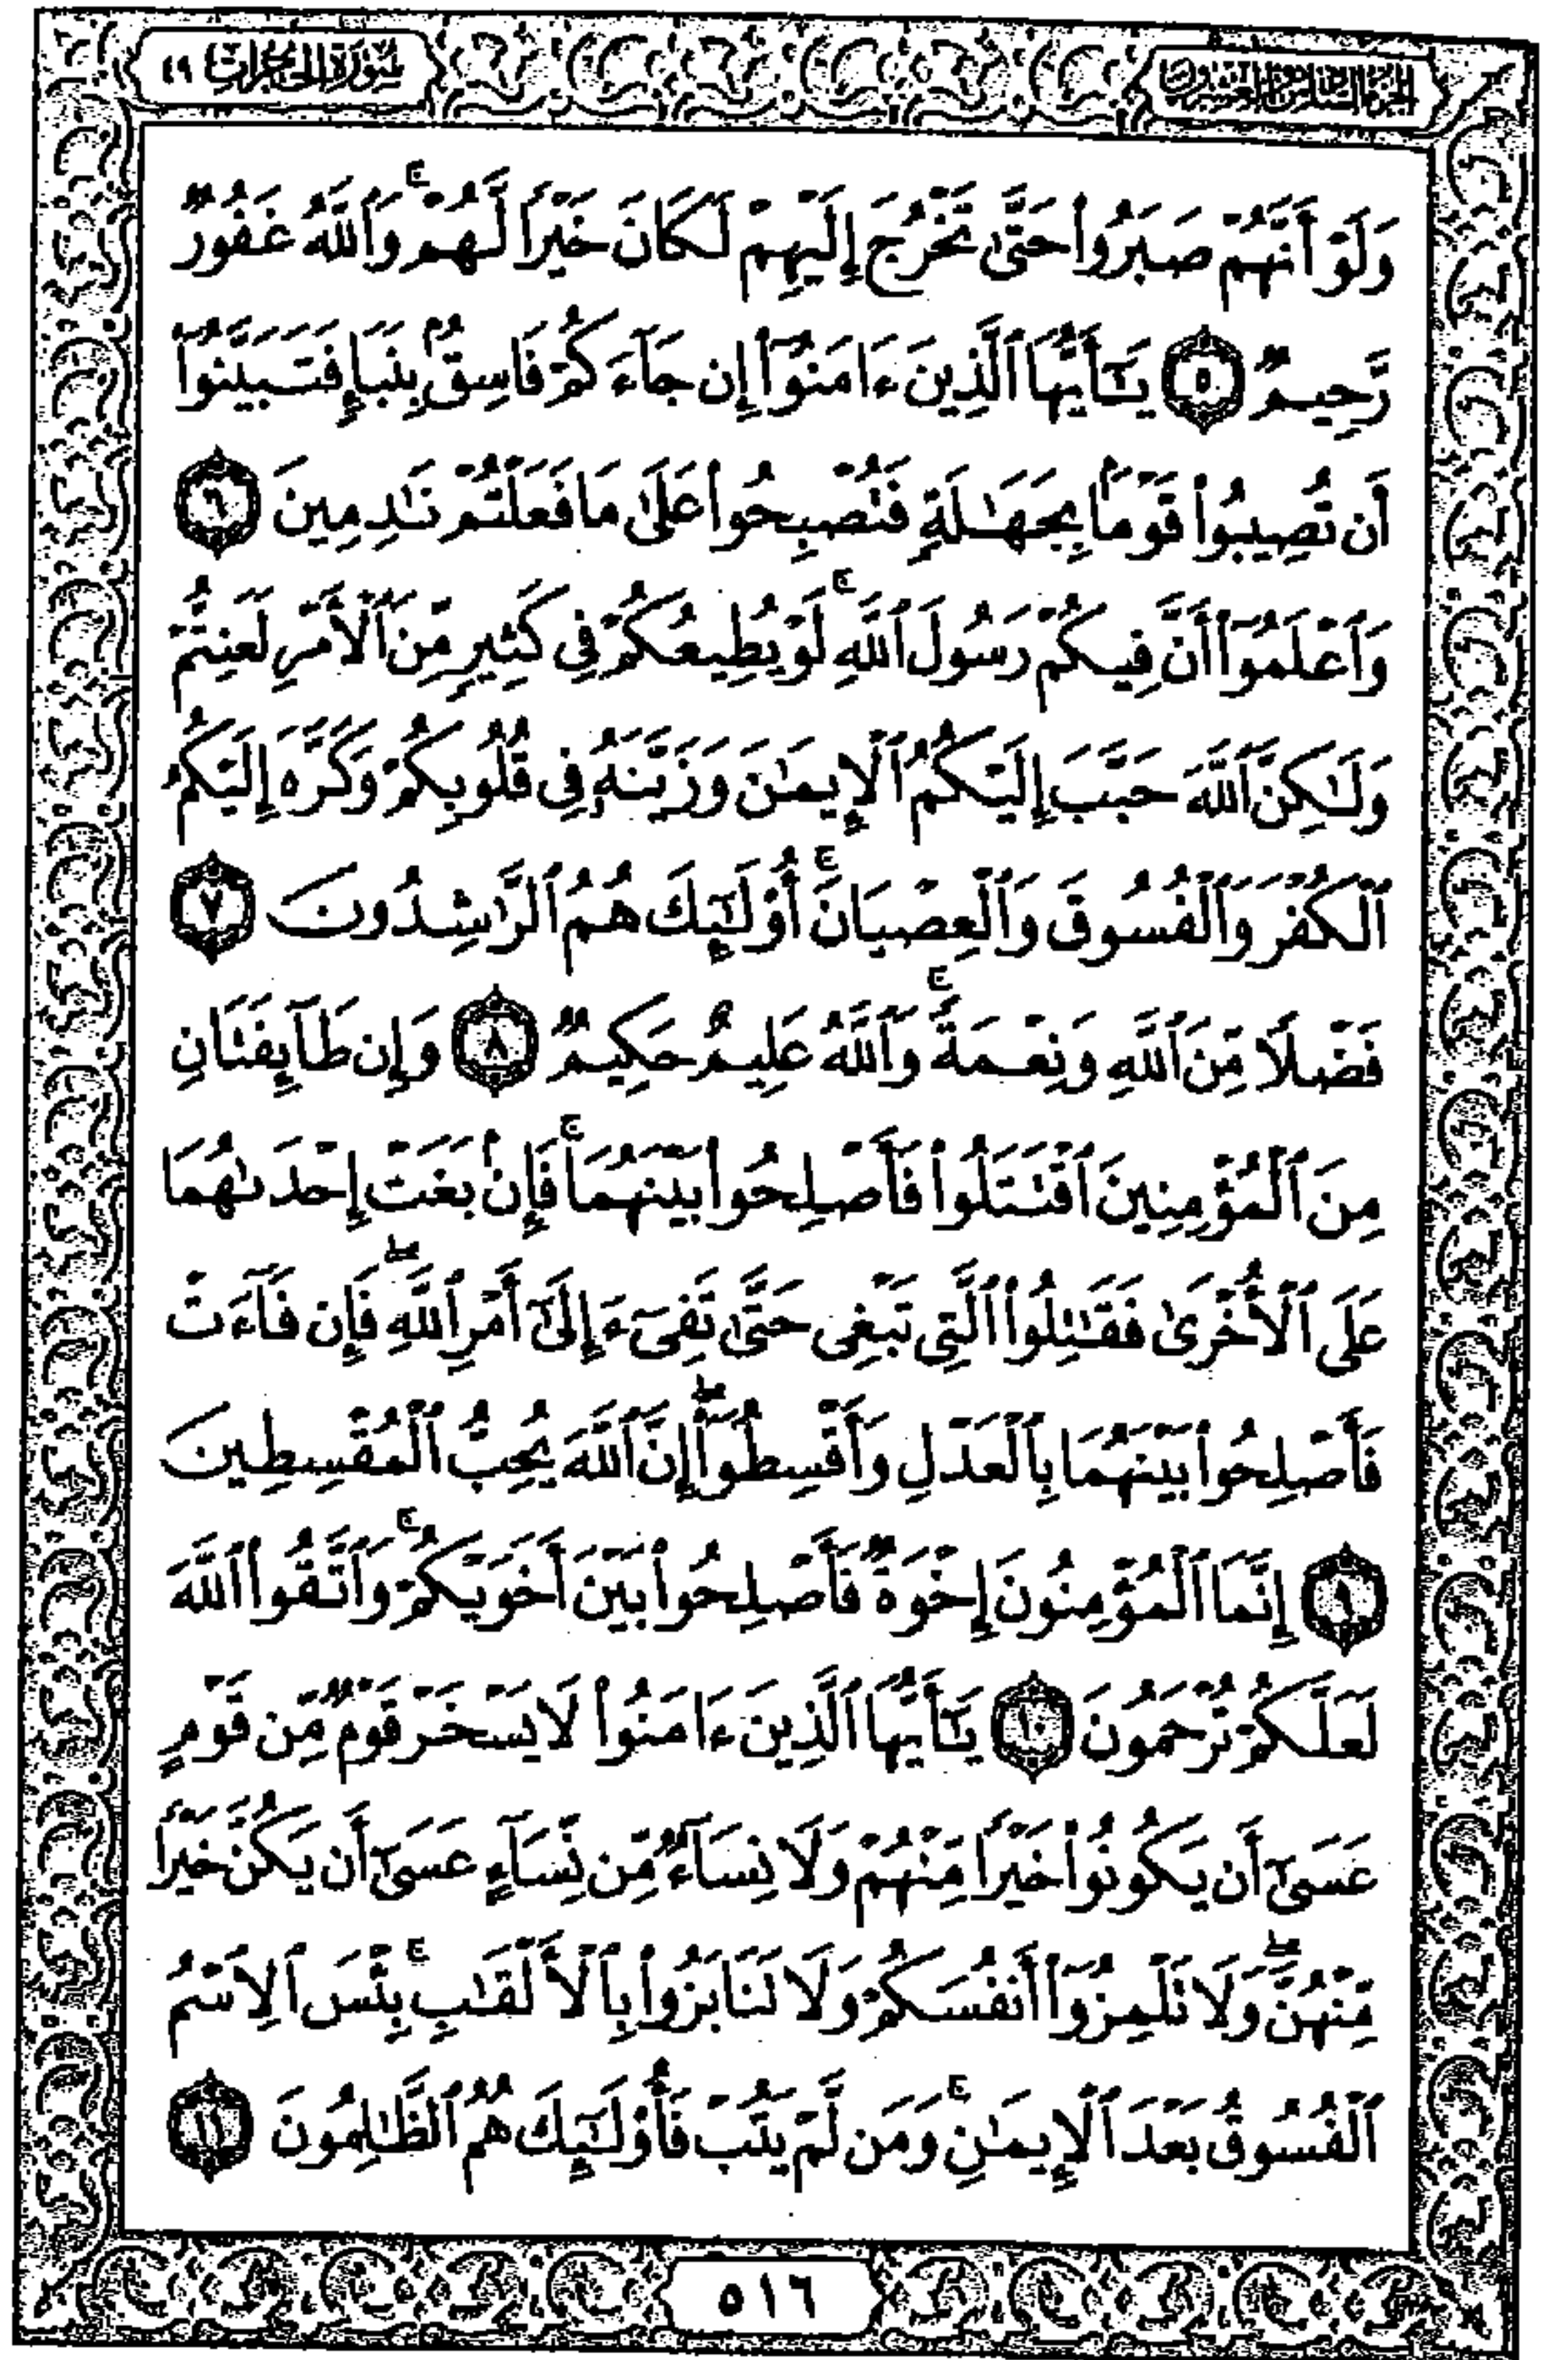 الجزء السادس والعشرون
سورة الحجرات ٤٩
وَلَوْ أَنَّهُمْ صَبَرُوا۟ حَتَّىٰ تَخْرُجَ إِلَيْهِمْ لَكَانَ خَيْرًا لَّهُمْ ۚ وَٱللَّهُ غَفُورٌ
رَّحِيمٌ ٥ يَـٰٓأَيُّهَا ٱلَّذِينَ ءَامَنُوٓا۟ إِن جَآءَكُمْ فَاسِقٌۢ بِنَبَإٍ فَتَبَيَّنُوٓا۟
أَن تُصِيبُوا۟ قَوْمًۢا بِجَهَـٰلَةٍ فَتُصْبِحُوا۟ عَلَىٰ مَا فَعَلْتُمْ نَـٰدِمِينَ ٦
وَٱعْلَمُوٓا۟ أَنَّ فِيكُمْ رَسُولَ ٱللَّهِ ۚ لَوْ يُطِيعُكُمْ فِى كَثِيرٍ مِّنَ ٱلْأَمْرِ لَعَنِتُّمْ
وَلَـٰكِنَّ ٱللَّهَ حَبَّبَ إِلَيْكُمُ ٱلْإِيمَـٰنَ وَزَيَّنَهُۥ فِى قُلُوبِكُمْ وَكَرَّهَ إِلَيْكُمُ
ٱلْكُفْرَ وَٱلْفُسُوقَ وَٱلْعِصْيَانَ ۚ أُو۟لَـٰٓئِكَ هُمُ ٱلرَّٰشِدُونَ ٧
فَضْلًا مِّنَ ٱللَّهِ وَنِعْمَةً ۚ وَٱللَّهُ عَلِيمٌ حَكِيمٌ ٨ وَإِن طَآئِفَتَانِ
مِنَ ٱلْمُؤْمِنِينَ ٱقْتَتَلُوا۟ فَأَصْلِحُوا۟ بَيْنَهُمَا ۚ فَإِنۢ بَغَتْ إِحْدَىٰهُمَا
عَلَى ٱلْأُخْرَىٰ فَقَـٰتِلُوا۟ ٱلَّتِى تَبْغِى حَتَّىٰ تَفِىٓءَ إِلَىٰٓ أَمْرِ ٱللَّهِ ۖ فَإِن فَآءَتْ
فَأَصْلِحُوا۟ بَيْنَهُمَا بِٱلْعَدْلِ وَأَقْسِطُوٓا۟ ۖ إِنَّ ٱللَّهَ يُحِبُّ ٱلْمُقْسِطِينَ
٩ إِنَّمَا ٱلْمُؤْمِنُونَ إِخْوَةٌ فَأَصْلِحُوا۟ بَيْنَ أَخَوَيْكُمْ ۚ وَٱتَّقُوا۟ ٱللَّهَ
لَعَلَّكُمْ تُرْحَمُونَ ١٠ يَـٰٓأَيُّهَا ٱلَّذِينَ ءَامَنُوا۟ لَا يَسْخَرْ قَوْمٌ مِّن قَوْمٍ
عَسَىٰٓ أَن يَكُونُوا۟ خَيْرًا مِّنْهُمْ وَلَا نِسَآءٌ مِّن نِّسَآءٍ عَسَىٰٓ أَن يَكُنَّ خَيْرًا
مِّنْهُنَّ ۖ وَلَا تَلْمِزُوٓا۟ أَنفُسَكُمْ وَلَا تَنَابَزُوا۟ بِٱلْأَلْقَـٰبِ ۚ بِئْسَ ٱلِٱسْمُ
ٱلْفُسُوقُ بَعْدَ ٱلْإِيمَـٰنِ ۚ وَمَن لَّمْ يَتُبْ فَأُو۟لَـٰٓئِكَ هُمُ ٱلظَّـٰلِمُونَ ١١
٥١٦